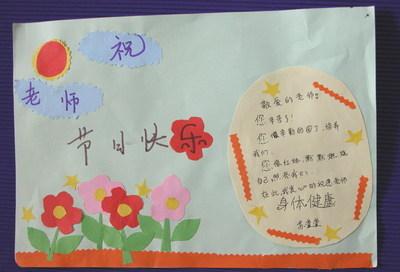 祝
老师
节日快乐
敬爱的老师:
您辛苦了!
您像辛勤的园丁,培养
我们.
您像红烛,默默燃烧
自己,照亮我们.
在此,我衷心的祝愿老师
身体健康